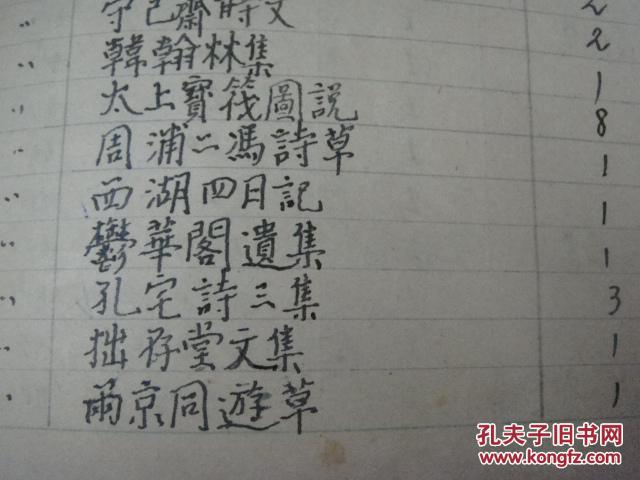 守己齋時文 2
〃 韓翰林集 2
〃 太上寶筏圖說 1
〃 周浦二馮詩草 8
〃 西湖四日記 1
〃 鬱華閣遺集 1
〃 孔宅詩三集 1
〃 拙存堂文集 3
〃 兩京同遊草 1
1
孔夫子旧书网
www.kongfz.com